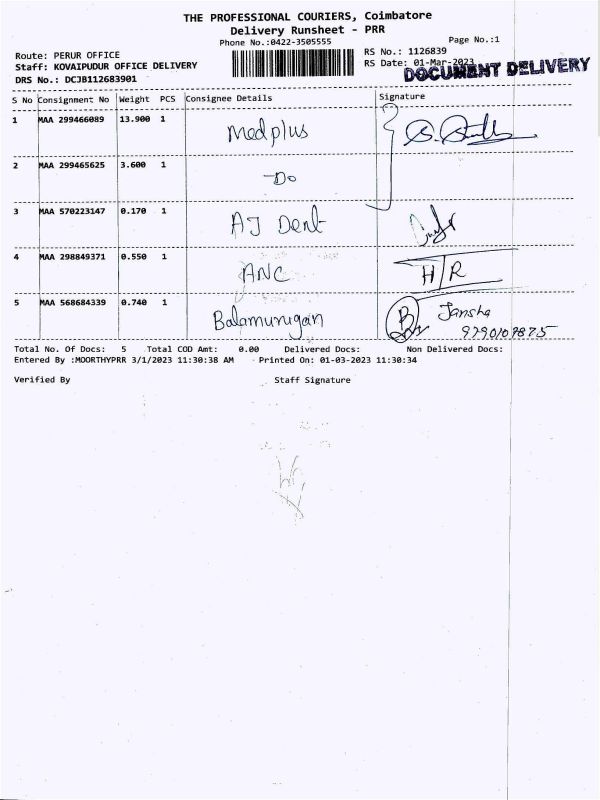 THE PROFESSIONAL COURIERS, Coimbatore
Delivery Runsheet - PRR
Phone No.:0422-3505555
Page No.:1
Route: PERUR OFFICE
RS No.: 1126839
Staff: KOVAIPUDUR OFFICE DELIVERY
RS Date: 01-Mar-2023
DOCUMENT DELIVERY
DRS No.: DCJB112683901
S No Consignment No Weight PCS Consignee Details Signature
1 MAA 299466089 13.900 1 Medplus
2 MAA 299465625 3.600 1 -Do
3 MAA 570223147 0.170 1 AJ Dent
4 MAA 298849371 0.550 1 ANC H/R
5 MAA 568684339 0.740 1 Balamurugan B Jansha
9790109875
Total No. Of Docs: 5 Total COD Amt: 0.00 Delivered Docs: Non Delivered Docs:
Entered By :MOORTHYPRR 3/1/2023 11:30:38 AM - Printed On: 01-03-2023 11:30:34
Verified By Staff Signature